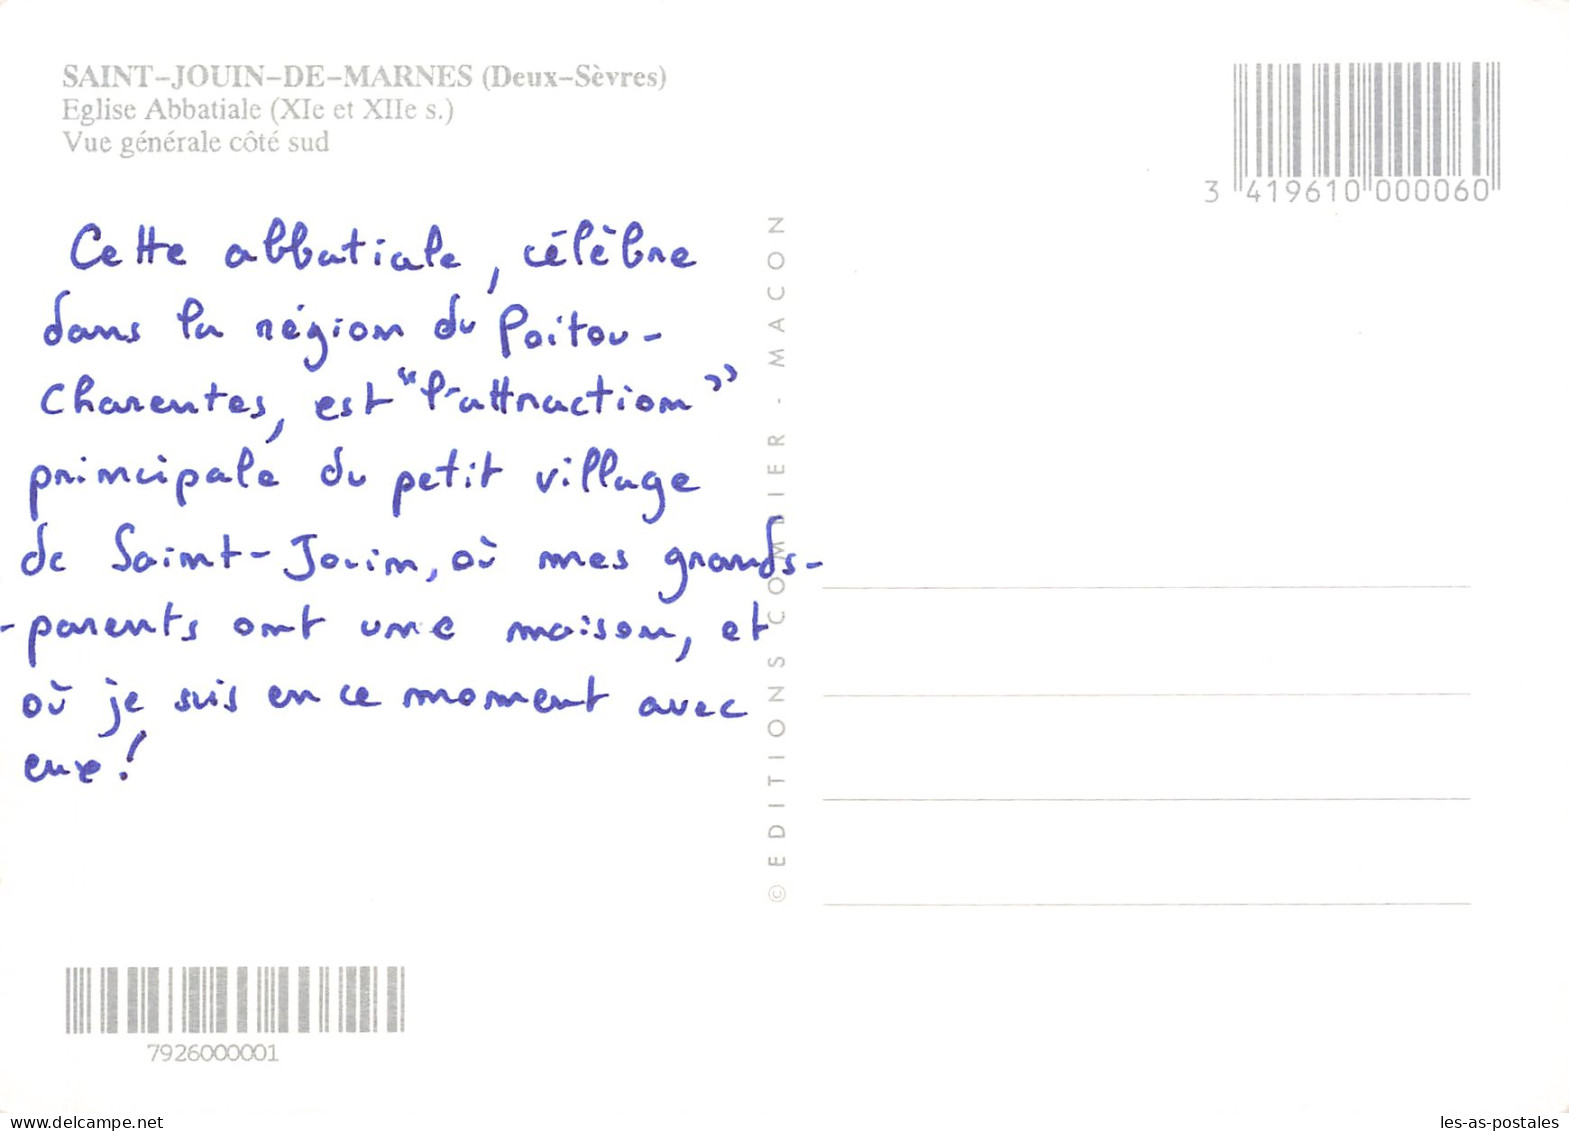 SAINT-JOUIN-DE-MARNES (Deux-Sèvres)
Eglise Abbatiale (XIe et XIIe s.)
Vue générale côté sud
3 419610 000060
Cette abbatiale, célèbre
dans la région du Poitou-
Charentes, est "l'attraction"
principale du petit village
de Saint-Jouin, où mes grands-
-parents ont une maison, et
où je suis en ce moment avec
eux !
© EDITIONS COMBIER - MACON
7926000001
www.delcampe.net
les-as-postales